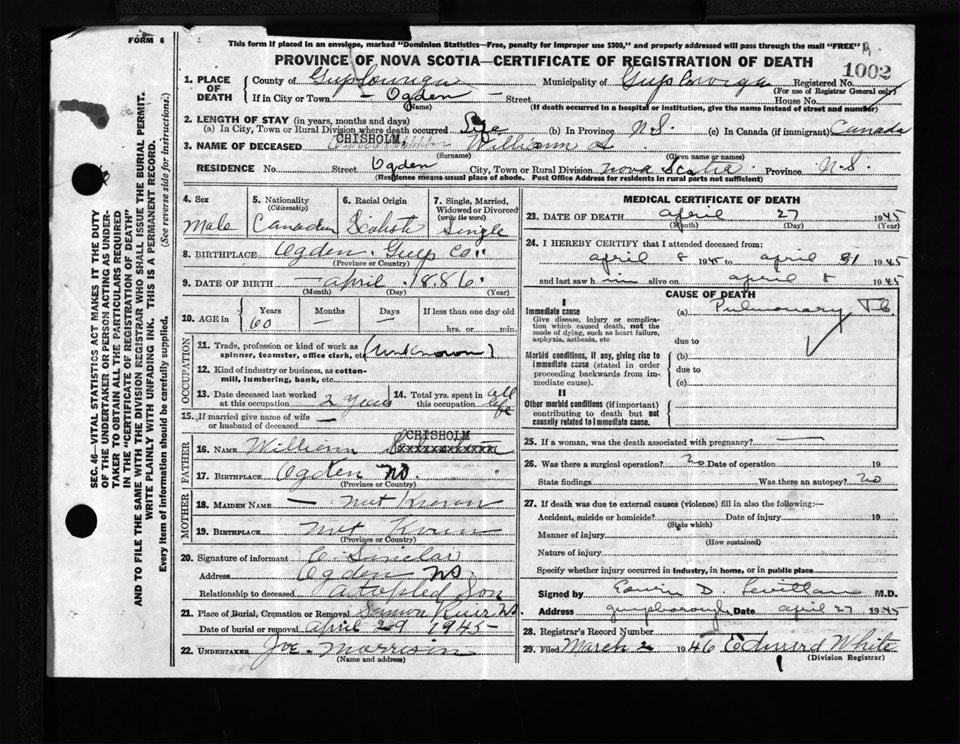 FORM 6
This form if placed in an envelope, marked "Dominion Statistics—Free, penalty for improper use $300," and properly addressed will pass through the mail "FREE"
PROVINCE OF NOVA SCOTIA—CERTIFICATE OF REGISTRATION OF DEATH
1002
1. PLACE OF DEATH
County of
Municipality of
Registered No.
(For use of Registrar General only)
If in City or Town — Ogden — Street House No.
(Name) (If death occurred in a hospital or institution, give the name instead of street and number)
2. LENGTH OF STAY (in years, months and days)
(a) In City, Town or Rural Division where death occurred Life (b) In Province N.S. (c) In Canada (if immigrant) Canada
3. NAME OF DECEASED CHISHOLM William A
(Surname) (Given name or names)
RESIDENCE No. Street Ogden City, Town or Rural Division Nova Scotia Province N.S.
(Residence means usual place of abode. Post Office Address for residents in rural parts not sufficient)
4. Sex 5. Nationality (Citizenship) 6. Racial Origin 7. Single, Married, Widowed or Divorced (write the word)
Male Canadian Scotish Single
8. BIRTHPLACE Ogden Guys Co.
(Province or Country)
9. DATE OF BIRTH April 1886
(Month) (Day) (Year)
10. AGE in Years Months Days If less than one day old
60 — — hrs. or min.
OCCUPATION
11. Trade, profession or kind of work as spinner, teamster, office clerk, etc. (unknown)
12. Kind of industry or business, as cotton-mill, lumbering, bank, etc.
13. Date deceased last worked at this occupation 2 years
14. Total yrs. spent in this occupation all life
15. If married give name of wife or husband of deceased —
FATHER
16. NAME William CHISHOLM
17. BIRTHPLACE Ogden NS.
(Province or Country)
MOTHER
18. MAIDEN NAME — not Known
19. BIRTHPLACE not Known
(Province or Country)
20. Signature of informant C. Sinclar
Address Ogden NS.
Relationship to deceased adopted Son
21. Place of Burial, Cremation or Removal
Date of burial or removal April 29 1945
22. UNDERTAKER Joe Morrison
(Name and address)
MEDICAL CERTIFICATE OF DEATH
23. DATE OF DEATH April 27 1945
(Month) (Day) (Year)
24. I HEREBY CERTIFY that I attended deceased from:
april 8 1945 to april 1945
and last saw h im alive on april 8 1945
CAUSE OF DEATH
I
Immediate cause
Give disease, injury or complication which caused death, not the mode of dying, such as heart failure, asphyxia, asthenia, etc
(a) Pulmonary Tb
due to
Morbid conditions, if any, giving rise to immediate cause (stated in order proceeding backwards from immediate cause).
(b)
due to
(c)
II
Other morbid conditions (if important) contributing to death but not causally related to immediate cause.
25. If a woman, was the death associated with pregnancy? —
26. Was there a surgical operation? no Date of operation 19
State findings Was there an autopsy? no
27. If death was due to external causes (violence) fill in also the following:—
Accident, suicide or homicide? Date of injury 19
(State which)
Manner of injury
(How sustained)
Nature of injury
Specify whether injury occurred in industry, in home, or in public place
Signed by Edwin D. M.D.
Address guysborough Date april 27 1945
28. Registrar's Record Number
29. Filed March 2 1946 Edward White
(Division Registrar)
SEC. 46—VITAL STATISTICS ACT MAKES IT THE DUTY
OF THE UNDERTAKER OR PERSON ACTING AS UNDERTAKER TO OBTAIN ALL THE PARTICULARS REQUIRED
IN THE "CERTIFICATE OF REGISTRATION OF DEATH"
AND TO FILE THE SAME WITH THE DIVISION REGISTRAR WHO SHALL ISSUE THE BURIAL PERMIT.
WRITE PLAINLY WITH UNFADING INK. THIS IS A PERMANENT RECORD.
Every item of information should be carefully supplied. (See reverse side for instructions)